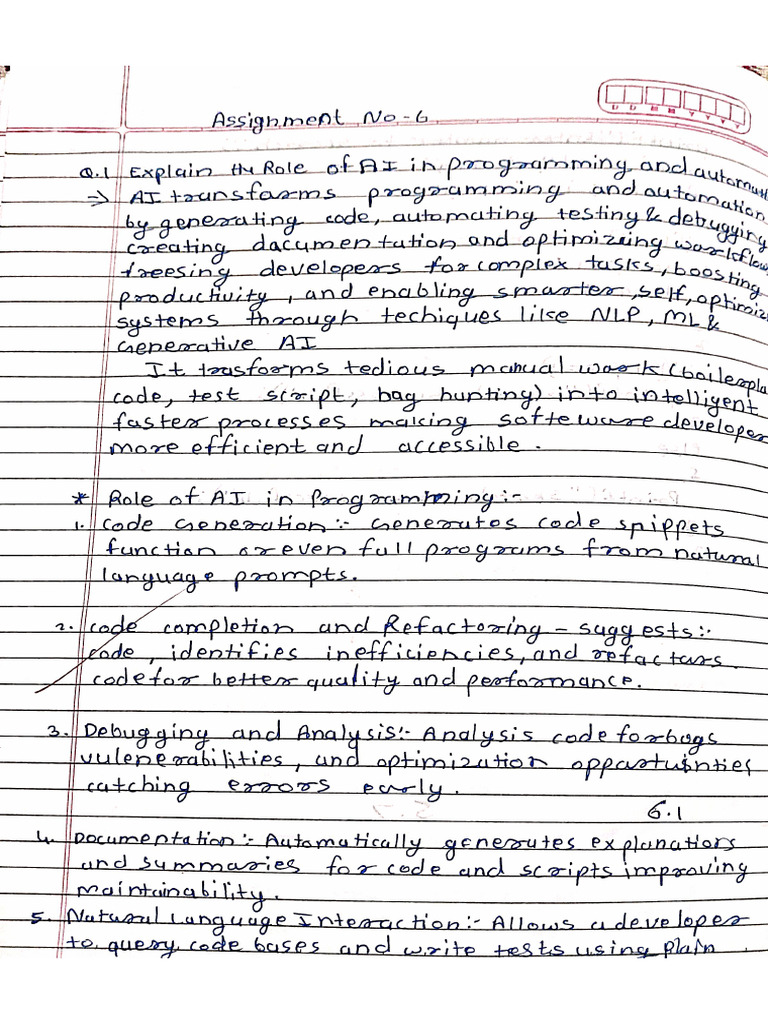 Assignment No-6
D D M M Y Y Y Y
Q.1 Explain the Role of AI in programming and automati
⇒ AI transforms programming and automation
by generating code, automating testing & debugging
creating documentation and optimizing workflow
freesing developers for complex tasks, boosting
productivity, and enabling smarter, self, optimiz
systems through techiques like NLP, ML &
Generative AI
It trasforms tedious manual work (boilerpla
code, test script, bag hunting) into intelligent
faster processes making softeware developer
more efficient and accessible.
* Role of AI in Programming :-
1. Code Generation :- Generates code snippets
function or even full programs from natural
language prompts.
2. code completion and Refactoring - suggests:-
code, identifies inefficiencies, and refactors.
code for better quality and performance.
3. Debugging and Analysis:- Analysis code for bugs
vulenerabilities, and optimization opportunities
catching errors early.
6.1
4. Documentation :- Automatically generates explanations
and summaries for code and scripts improving
maintainability.
5. Natural Language Interaction:- Allows a developer
to query code bases and write tests using plain